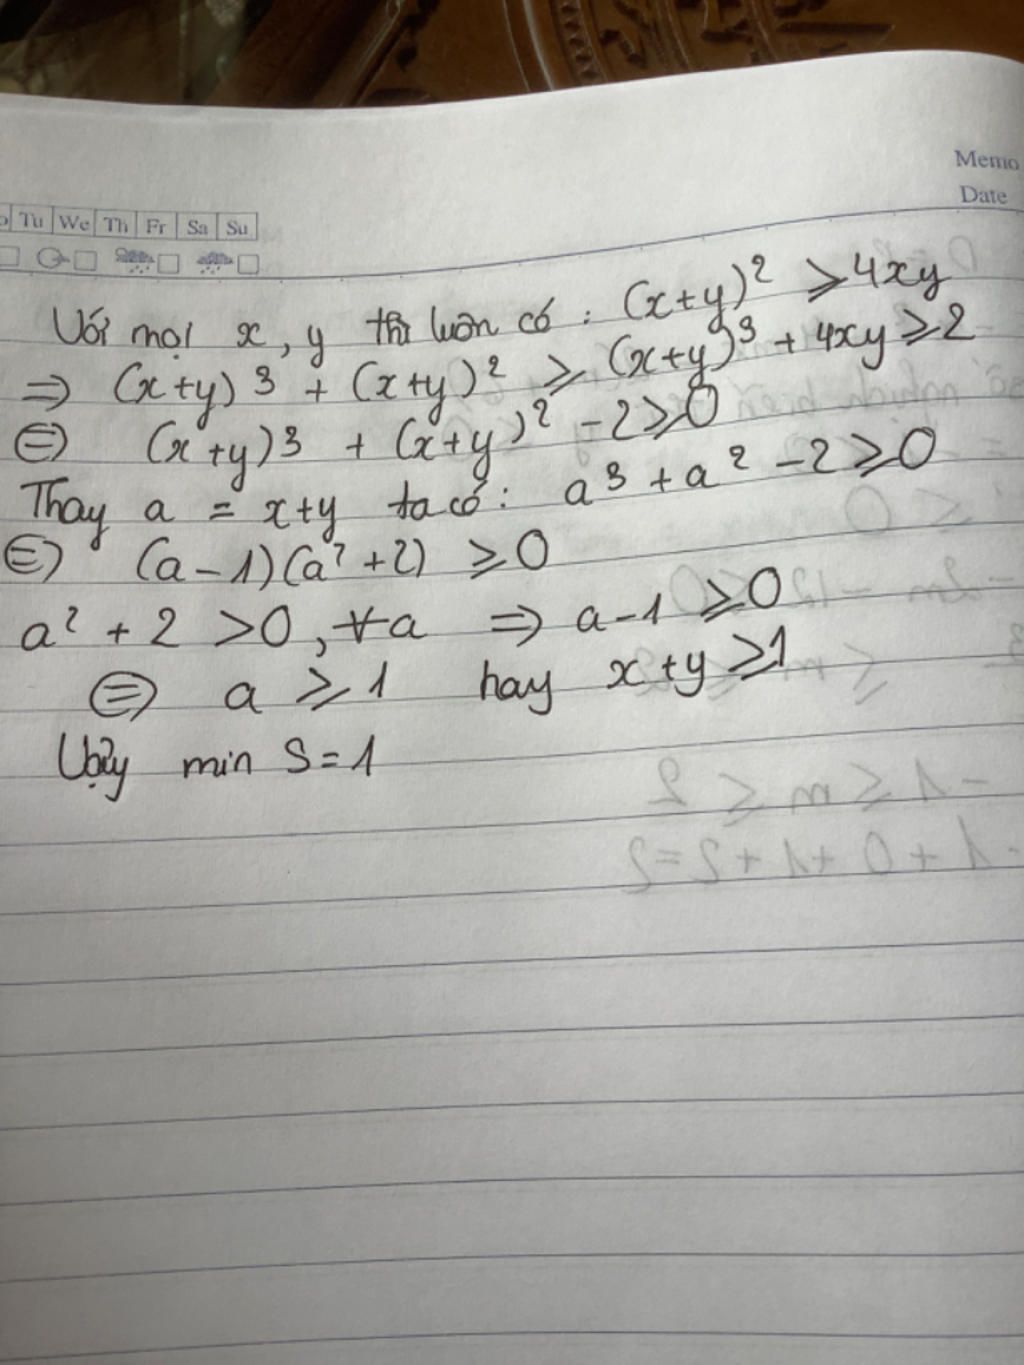 Memo
Date
Tu We Th Fr Sa Su
Với mọi x, y thì luôn có : (x+y)² ⩾ 4xy
⇒ (x+y)³ + (x+y)² ⩾ (x+y)³ + 4xy ⩾ 2
⇔ (x+y)³ + (x+y)² - 2 ⩾ 0
Thay a = x+y ta có : a³ + a² - 2 ⩾ 0
⇔ (a-1)(a²+2) ⩾ 0
a² + 2 > 0, ∀a ⇒ a-1 ⩾ 0
⇔ a ⩾ 1 hay x+y ⩾ 1
Vậy min S=1